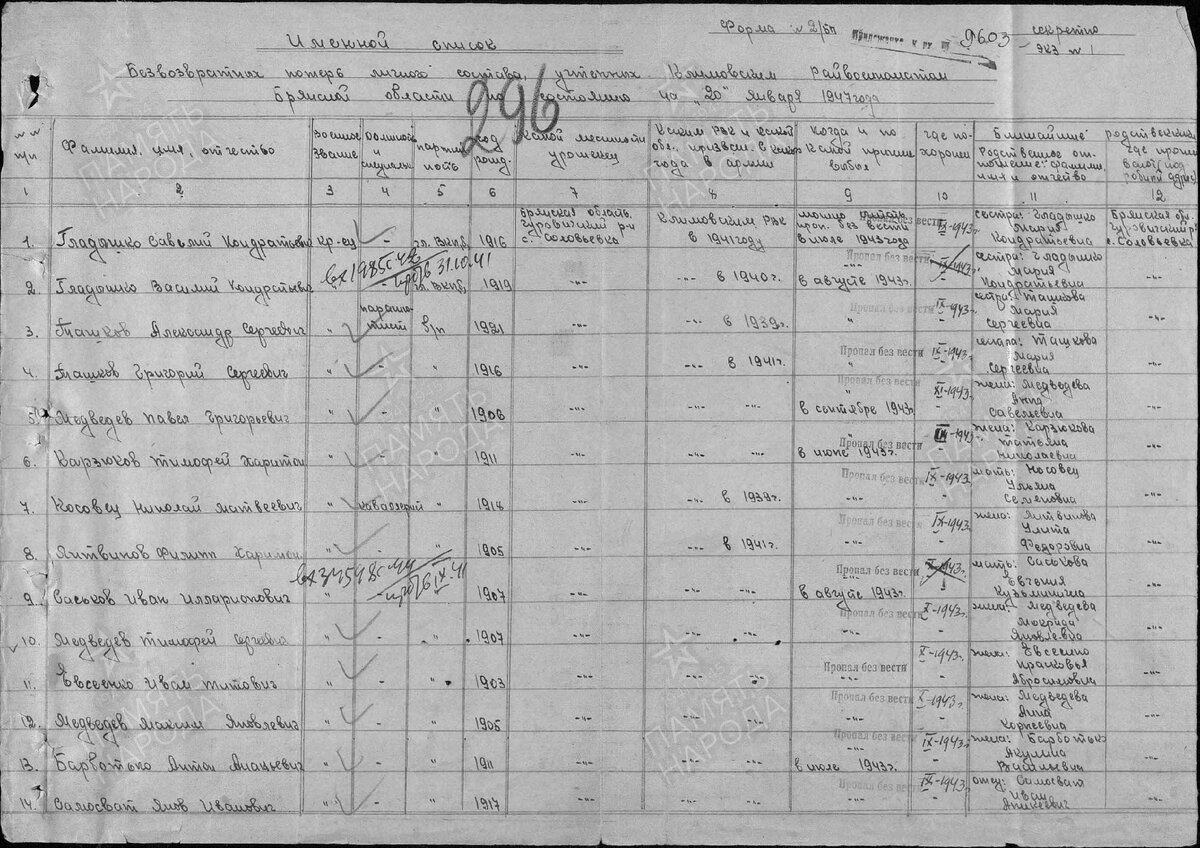 Форма № 2/БП
Приложение к вх. №
9603
секретно
экз № 1
Именной список
Безвозвратных потерь личного состава, учтенных Климовским Райвоенкоматом
Брянской области по состоянию на "20" января 1947 года
296
№ № п/п
Фамилия, имя, отчество
Военное звание
должность и
партий ность
год рожд.
какой местности уроженец
Каким РВК и какой обл. призван. В
года в армии
Когда и по какой причине выбыл
где похоронен
Ближайшие
Родственное отношение: фамилия, имя и отчество
родственники
1 2 3 4 5 6 7 8 9 10 11 12
1. Гладышко Савелий Кондратьевич кр-ец - чл. ВКПб, 1916 Брянская область, Чуровичский р-н с. Соловьевка Климовским РВК в 1941 году можно считать проп. без вести в июле 1943 года Пропал без вести IX-1943г. сестра: Гладышко Мария Кондратьевна Брянская обл Чуровичский р с. Соловьевка
вх 1985
31.10.41
2. Гладышко Василий Кондратьевич " - чл. ВКПб, 1919 -"- -"- в 1940г. -"- в августе 1943г. Пропал без вести IX-1943г. сестра: Гладышко Мария Кондратьевна -"-
3. Ташков Александр Сергеевич " б/п 1921 -"- -"- в 1939г. " Пропал без вести IX-1943г. сестра: Ташкова Мария Сергеевна -"-
4. Ташков Григорий Сергеевич " - " 1916 -"- -"- в 1941г. " Пропал без вести IX-1943г. Ташкова Мария Сергеевна -"-
5. Медведев Павел Григорьевич " - " 1906 -"- -"- -"- в сентябре 1943г. Пропал без вести XI-1943г. жена: Медведева Анна Савельевна -"-
6. Карзюков Тимофей Харитон " - " 1911 -"- -"- -"- " в июне 1943г. Пропал без вести IX-1943г. жена: Карзюкова Татьяна Николаевна -"-
7. Косовец Николай Матвеевич " кавалерий " 1918 -"- -"- в 1939г. -"- Пропал без вести IX-1943г. мать: Носовец Ульяна Семеновна -"-
8. Литвинов Филипп Харитон " - " 1905 -"- -"- в 1941г. -"- Пропал без вести IX-1943г. жена: Литвинова Улита Федоровна -"-
9. Саськов Иван Илларионович " " 1907 -"- -"- -"- -"- в августе 1943г. Пропал без вести мать: Саськова Евгения Кузьминична -"-
10. Медведев Тимофей Сергеевич " - " 1907 -"- -"- -"- -"- Пропал без вести X-1943г. жена: Медведева Мокрида Яковлевна -"-
11. Евсеенко Иван Титович " - " 1903 -"- -"- -"- -"- Пропал без вести X-1943г. жена: Евсеенко Прасковья Абросимовна -"-
12. Медведев Максим Яковлевич " - " 1905 -"- -"- -"- -"- Пропал без вести X-1943г. жена: Медведева Анна Корнеевна -"-
13. Барботько Антон " - " 1911 -"- -"- -"- -"- в июле 1943г. Пропал без вести IX-1943г. жена: Барботько Акулина Васильевна -"-
14. Самосват Яков Иванович " - " 1917 -"- -"- -"- -"- Пропал без вести IX-1943г. отец: Самосват Иван Аникеевич -"-
ПАМЯТЬ НАРОДА